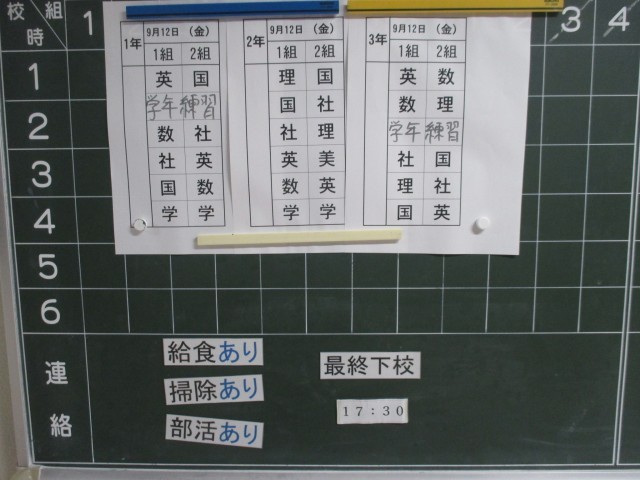 校 組 1 3 4
時
1
2
3
4
5
6
連
絡
1年 9月12日 (金)
1組 2組
英 国
学年練習
数 社
社 英
国 数
学 学
2年 9月12日 (金)
1組 2組
理 国
国 社
社 理
英 美
数 英
学 学
3年 9月12日 (金)
1組 2組
英 数
数 理
学年練習
社 国
理 社
国 英
給食あり
掃除あり
部活あり
最終下校
17:30